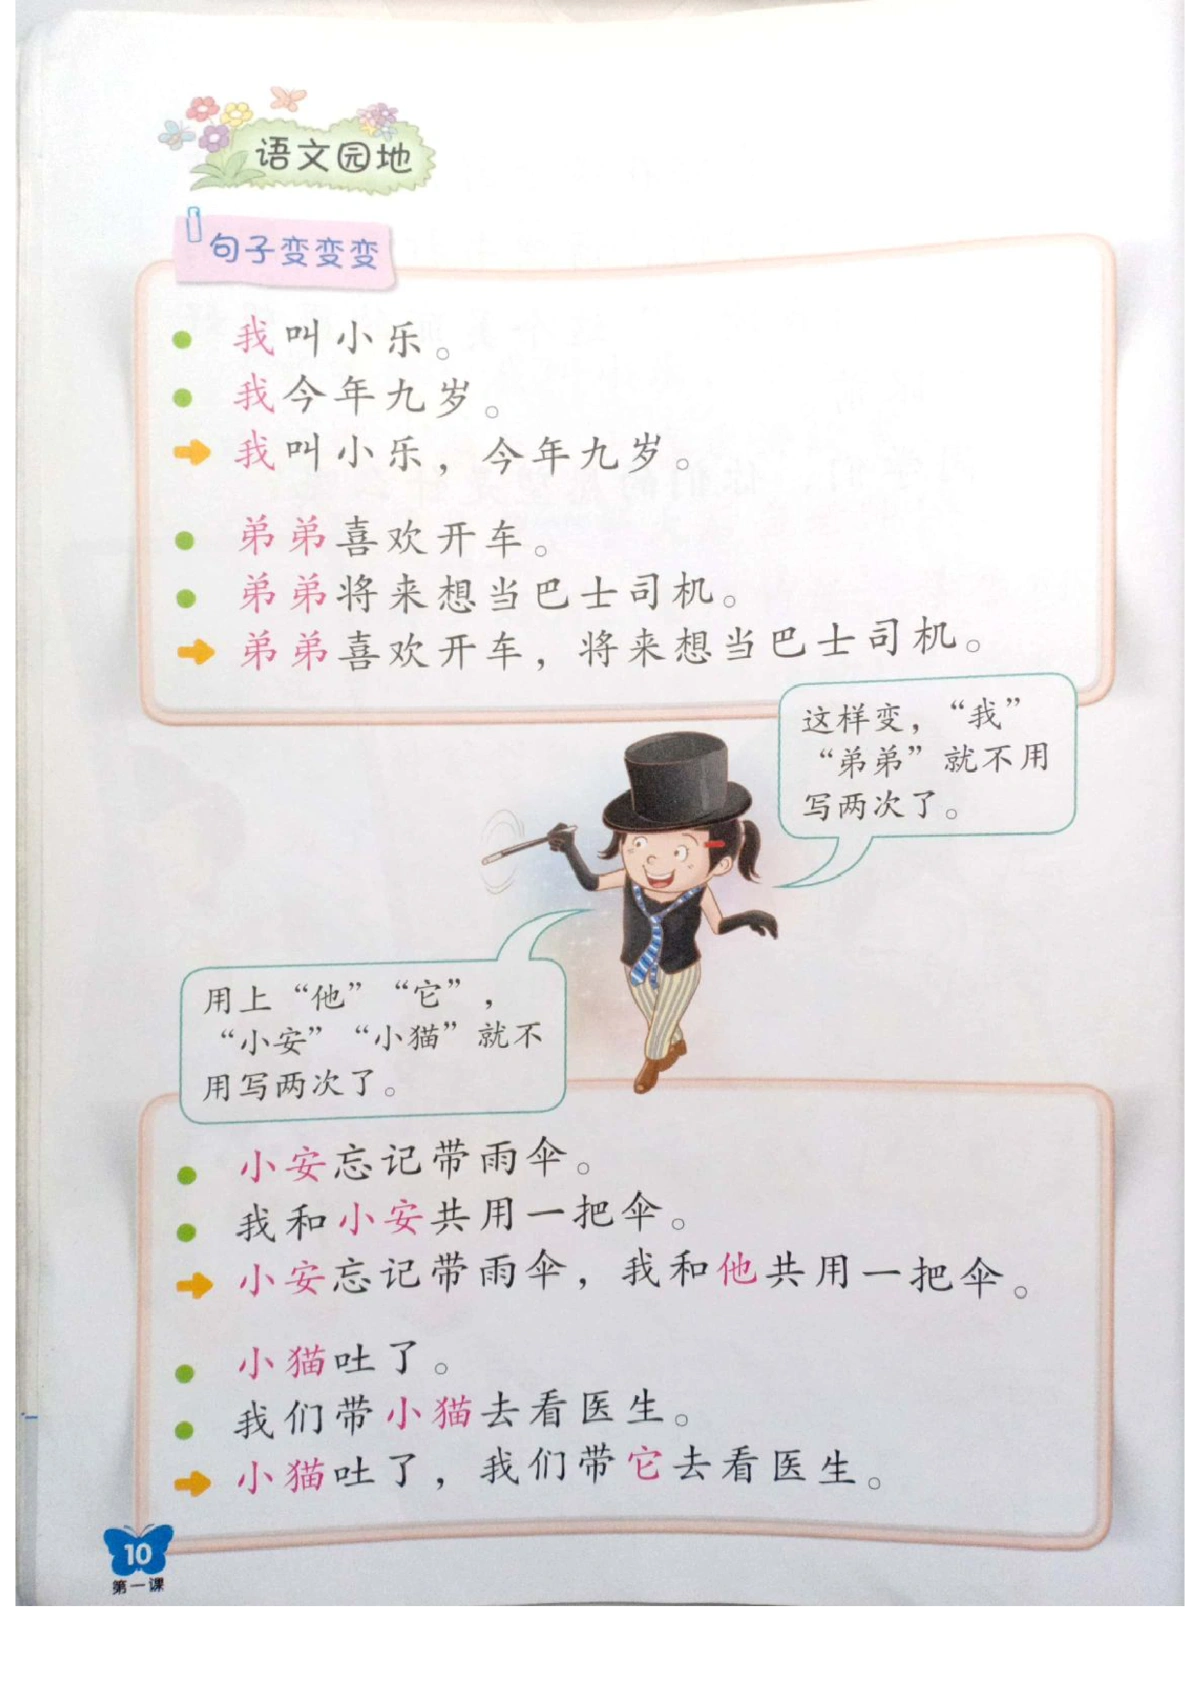 语文园地
句子变变变
我叫小乐。
我今年九岁。
我叫小乐，今年九岁。
弟弟喜欢开车。
弟弟将来想当巴士司机。
弟弟喜欢开车，将来想当巴士司机。
这样变，“我”
“弟弟”就不用
写两次了。
用上“他”“它”，
“小安”“小猫”就不
用写两次了。
小安忘记带雨伞。
我和小安共用一把伞。
小安忘记带雨伞，我和他共用一把伞。
小猫吐了。
我们带小猫去看医生。
小猫吐了，我们带它去看医生。
10
第一课